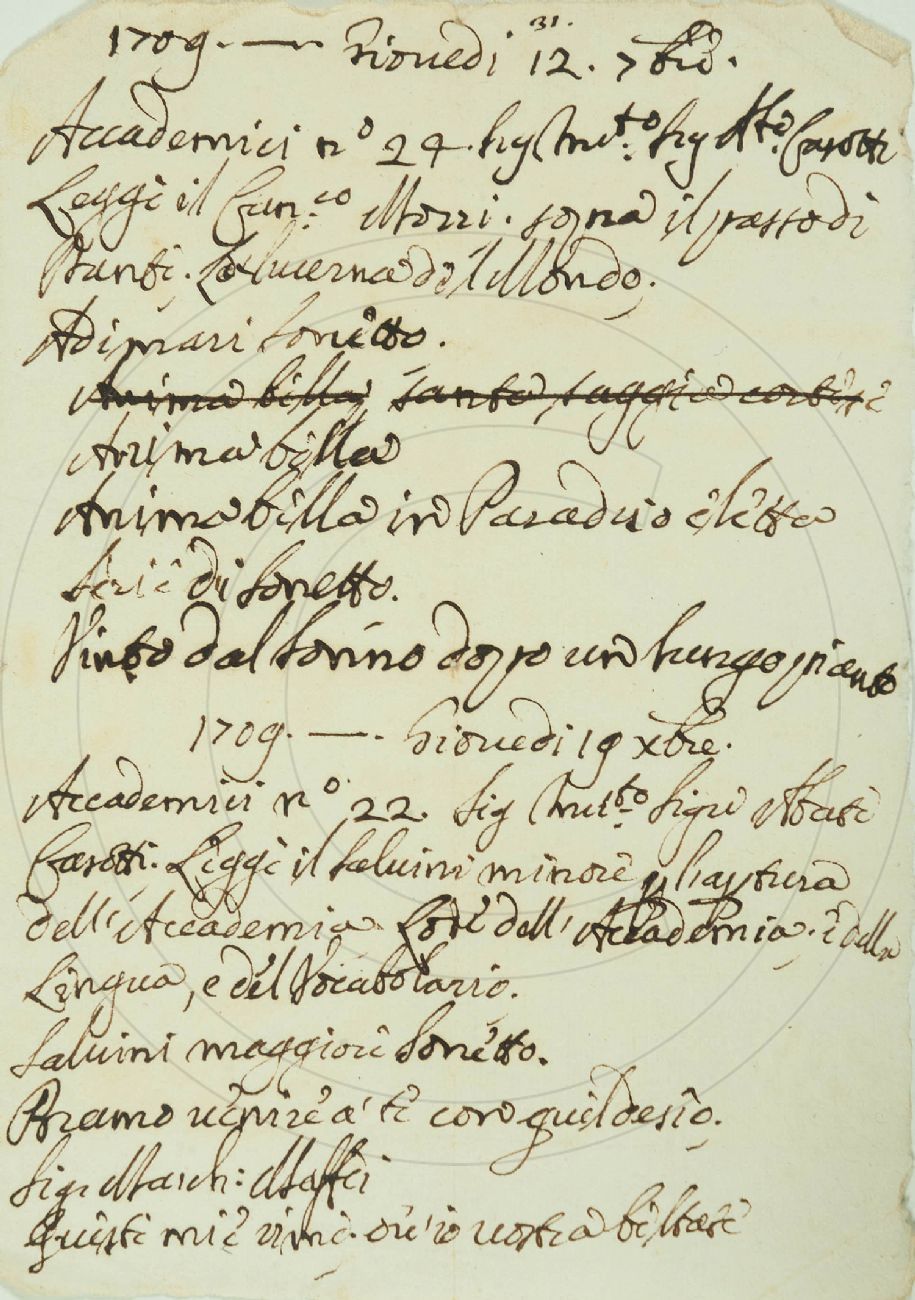 1709. — Giovedi 12. 7bre.
31.
Accademici n.º 24. Sig Invi.to Sig Ab.te Casotti
Leggè il Can.co Mozzi. sopra il passo di
Dante. La lucerna del Mondo.
Adimari sonetto.
Anima bella, santa, saggia e cortese
Anima bella
Anima bella in Paradiso eletta
Serie di Sonetto.
Vinto dal Sonno dopo un lungo pianto
1709. — . Giovedi 19 xbre.
Accademici n.º 22. Sig Invi.to Sigre Abate
Casotti. Leggè il Salvini minore p l'aptura
dell'Accademia Lode dell'Accademia. e della
Lingua, e del Vocabolario.
Salvini maggiore Sonetto.
Bramo venire a te con quel desio.
Sigr March: Maffei
Queste mie rime. ov'io vostra beltate